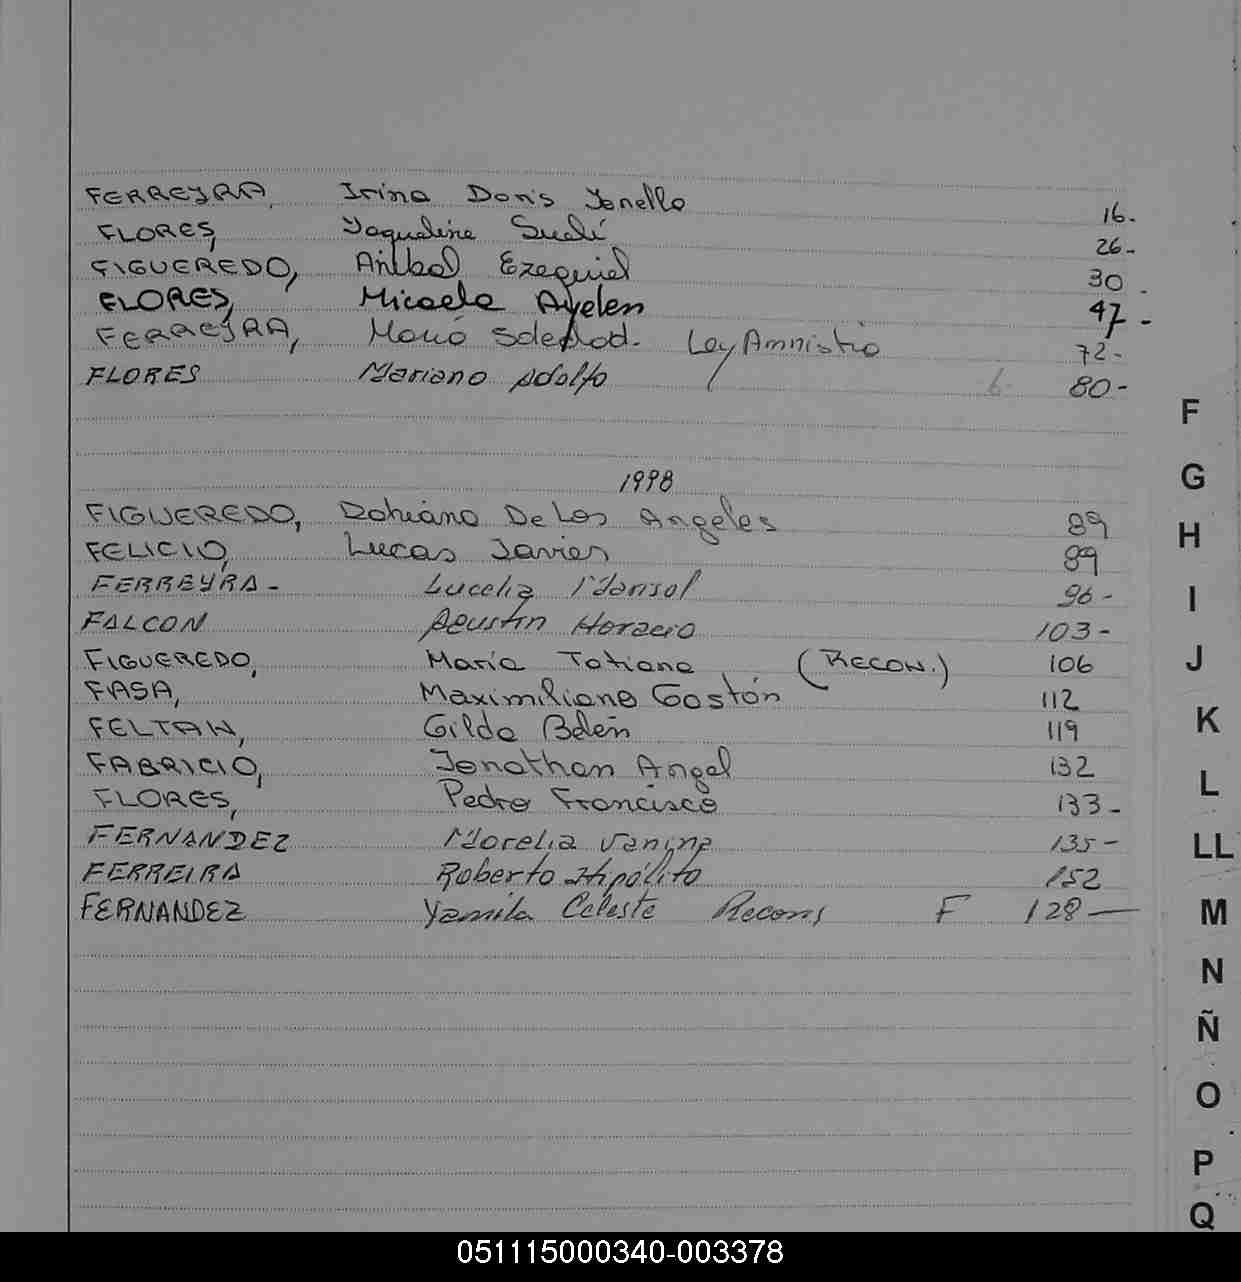 FERREYRA, Irina Doris Yanella 16-
FLORES, Yaqueline Suelí 26-
FIGUEREDO, Aníbal Ezequiel 30-
FLORES, Micaela Ayelen 47-
FERREYRA, María Soledad. Ley Amnistia 72-
FLORES Mariano Adolfo 80-
1998
FIGUEREDO, De Los Angeles 89
FELICIO, Lucas Javier 89
FERREYRA- Lucelia Marisol 96-
FALCON Agustin Horacio 103-
FIGUEREDO, María Tatiana (RECON.) 106
FASA, Maximiliano Gastón 112
FELTAN, Gilda Belén 119
FABRICIO, Jonathan Angel 132
FLORES, Pedro Francisco 133-
FERNANDEZ Morelia Vanina 135-
FERREIRA Roberto Hipólito 152
FERNANDEZ Yamila Celeste Recons F 128—
F
G
H
I
J
K
L
LL
M
N
Ñ
O
P
Q
051115000340-003378